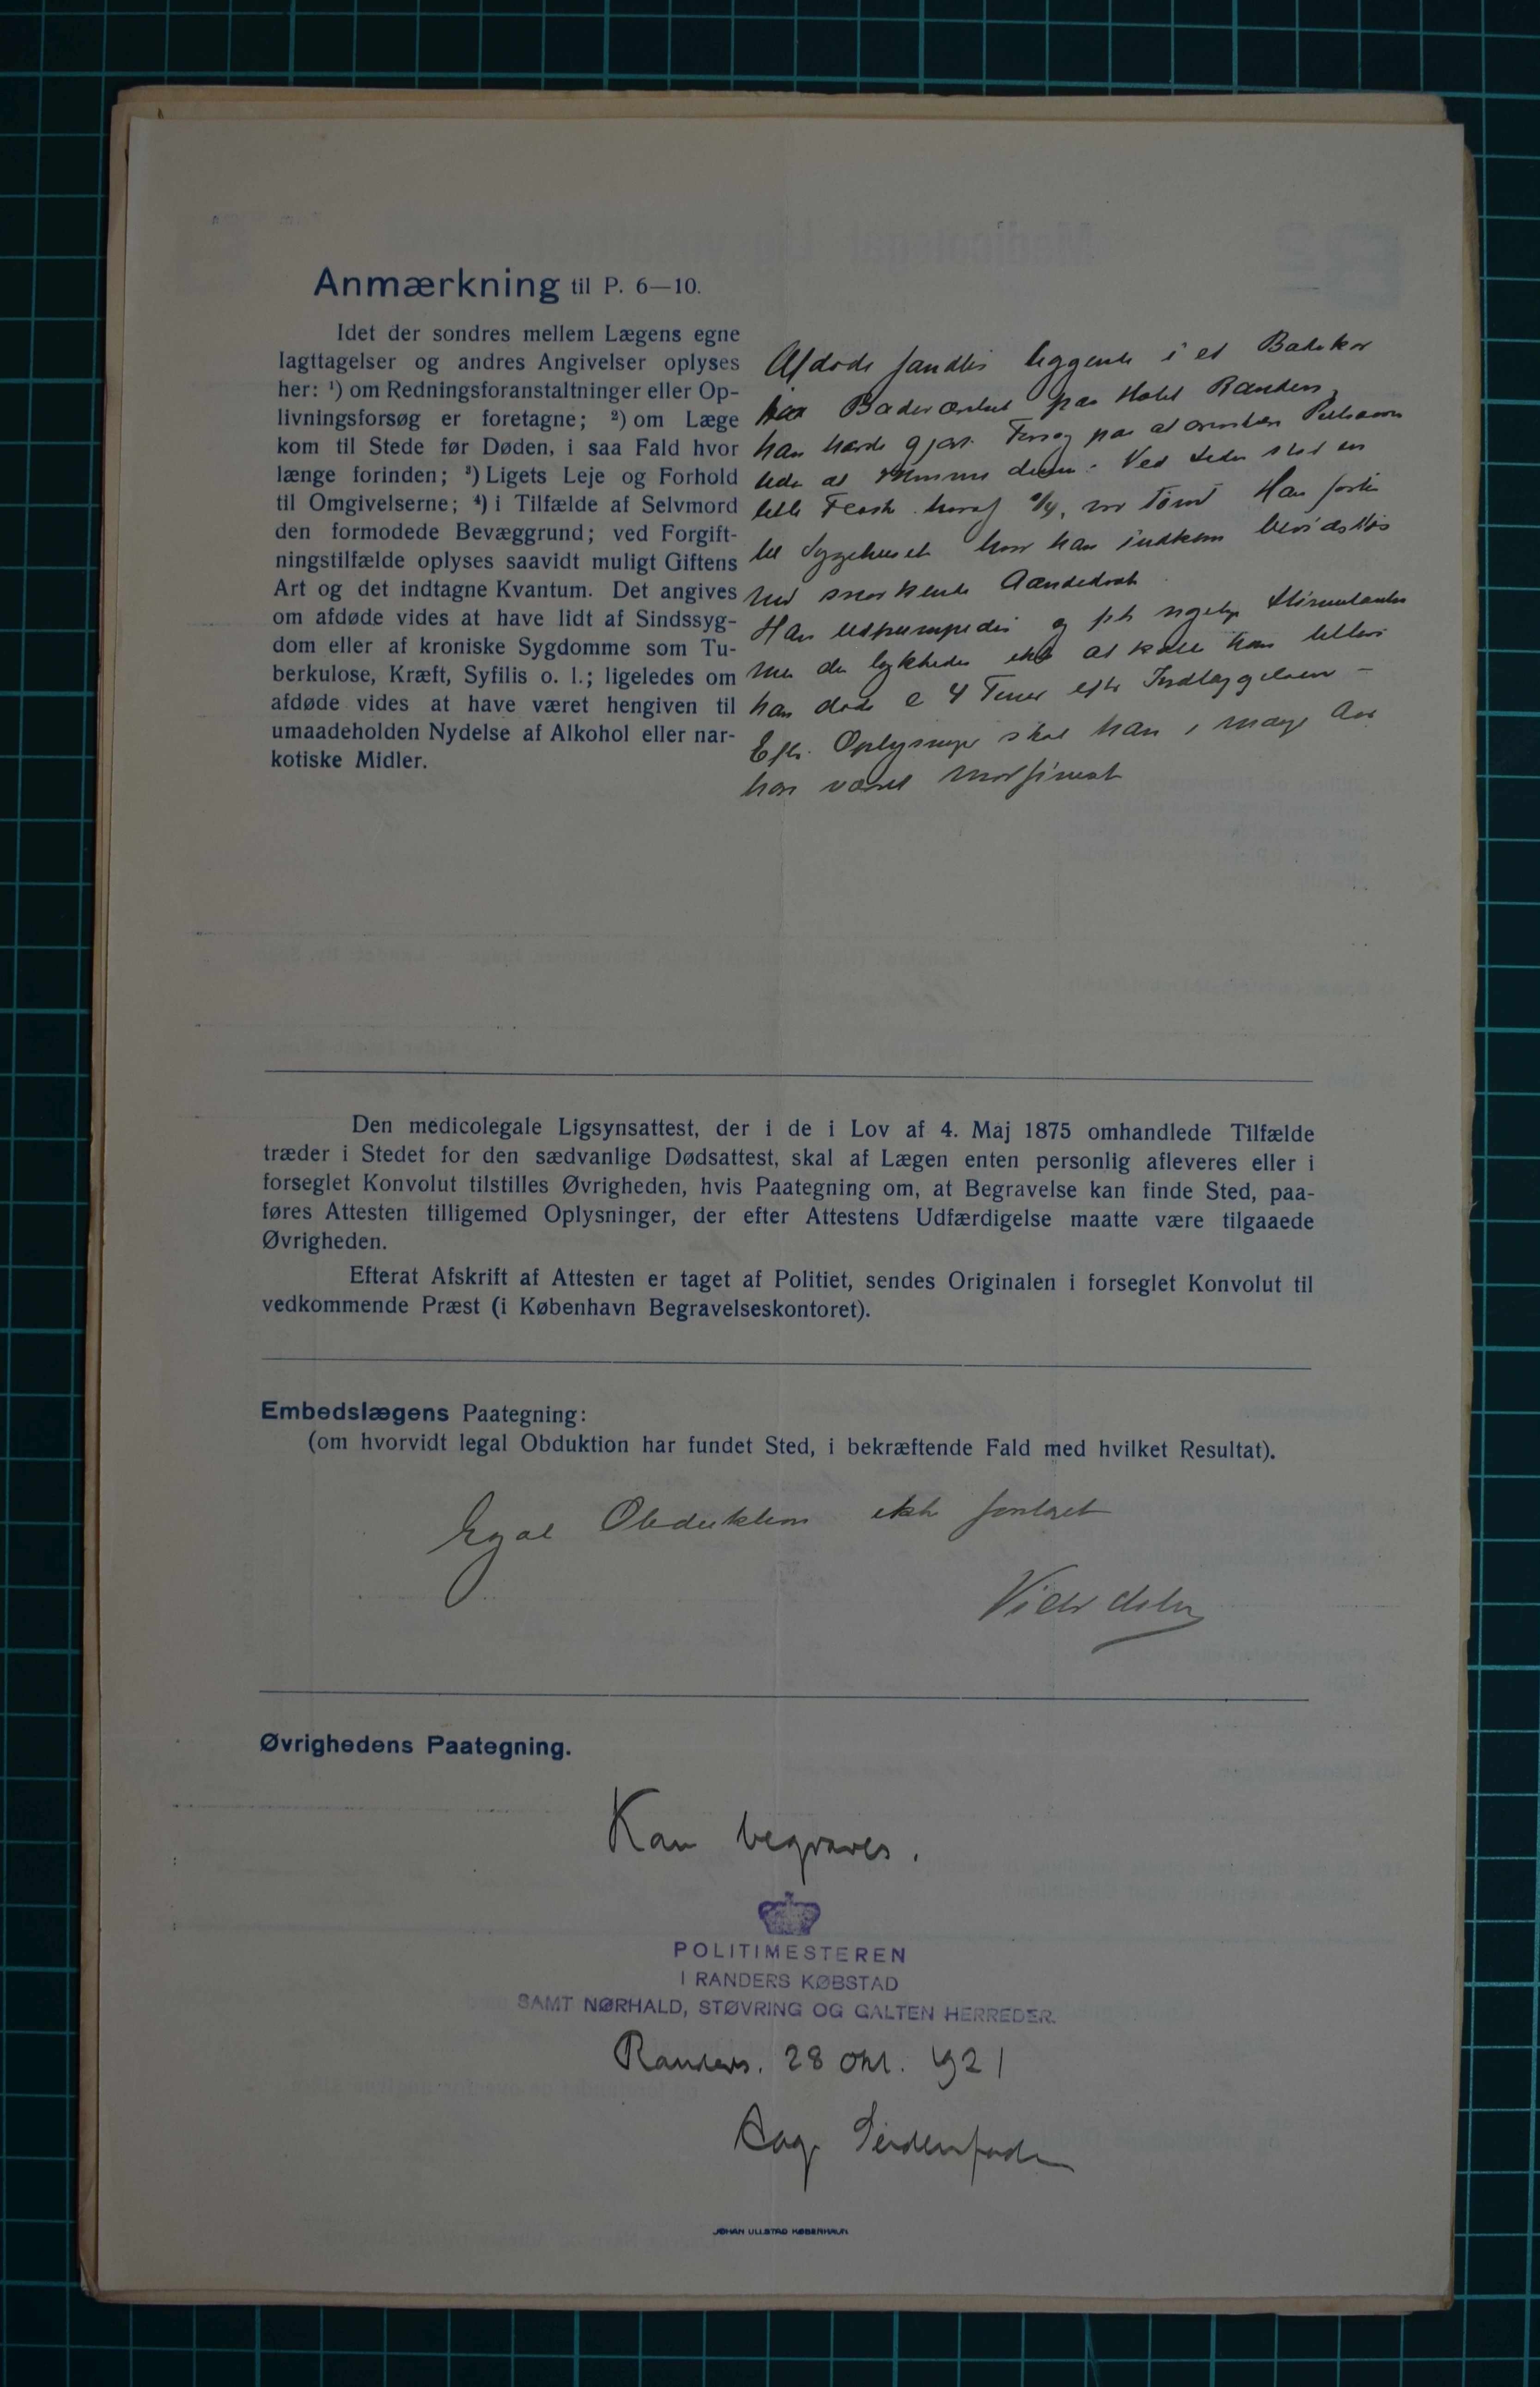 Anmærkning til P. 6—10.
Idet der sondres mellem Lægens egne
Iagttagelser og andres Angivelser oplyses
her: ¹) om Redningsforanstaltninger eller Op-
livningsforsøg er foretagne; ²) om Læge
kom til Stede før Døden, i saa Fald hvor
længe forinden; ³) Ligets Leje og Forhold
til Omgivelserne; ⁴) i Tilfælde af Selvmord
den formodede Bevæggrund; ved Forgift-
ningstilfælde oplyses saavidt muligt Giftens
Art og det indtagne Kvantum. Det angives
om afdøde vides at have lidt af Sindssyg-
dom eller af kroniske Sygdomme som Tu-
berkulose, Kræft, Syfilis o. l.; ligeledes om
afdøde vides at have været hengiven til
umaadeholden Nydelse af Alkohol eller nar-
kotiske Midler.
Afdøde fandtes liggende i et Badekar
Badeværelset paa Hotel Randers,
han havde gjort Forsøg paa at
Ved Siden stod en
lille Flaske hvoraf 3/4 var tømt Han førtes
til Sygehuset hvor han indkom bevidstløs
med snorkende Aandedræt
Han udpumpedes og fik rigelige Stimulantia
men det lykkedes ikke at kalde ham tillive
han døde c 4 Timer efter Indlæggelsen —
Efter Oplysninger skal han i mange Aar
have været Morfinist
Den medicolegale Ligsynsattest, der i de i Lov af 4. Maj 1875 omhandlede Tilfælde
træder i Stedet for den sædvanlige Dødsattest, skal af Lægen enten personlig afleveres eller i
forseglet Konvolut tilstilles Øvrigheden, hvis Paategning om, at Begravelse kan finde Sted, paa-
føres Attesten tilligemed Oplysninger, der efter Attestens Udfærdigelse maatte være tilgaaede
Øvrigheden.
Efterat Afskrift af Attesten er taget af Politiet, sendes Originalen i forseglet Konvolut til
vedkommende Præst (i København Begravelseskontoret).
Embedslægens Paategning:
(om hvorvidt legal Obduktion har fundet Sted, i bekræftende Fald med hvilket Resultat).
Legal Obduktion ikke foretaget
Øvrighedens Paategning.
Kan begraves.
POLITIMESTEREN
I RANDERS KØBSTAD
SAMT NØRHALD, STØVRING OG GALTEN HERREDER.
Randers. 28 Okt. 1921
Aage Seidenfaden
JOHAN ULLSTAD KØBENHAVN